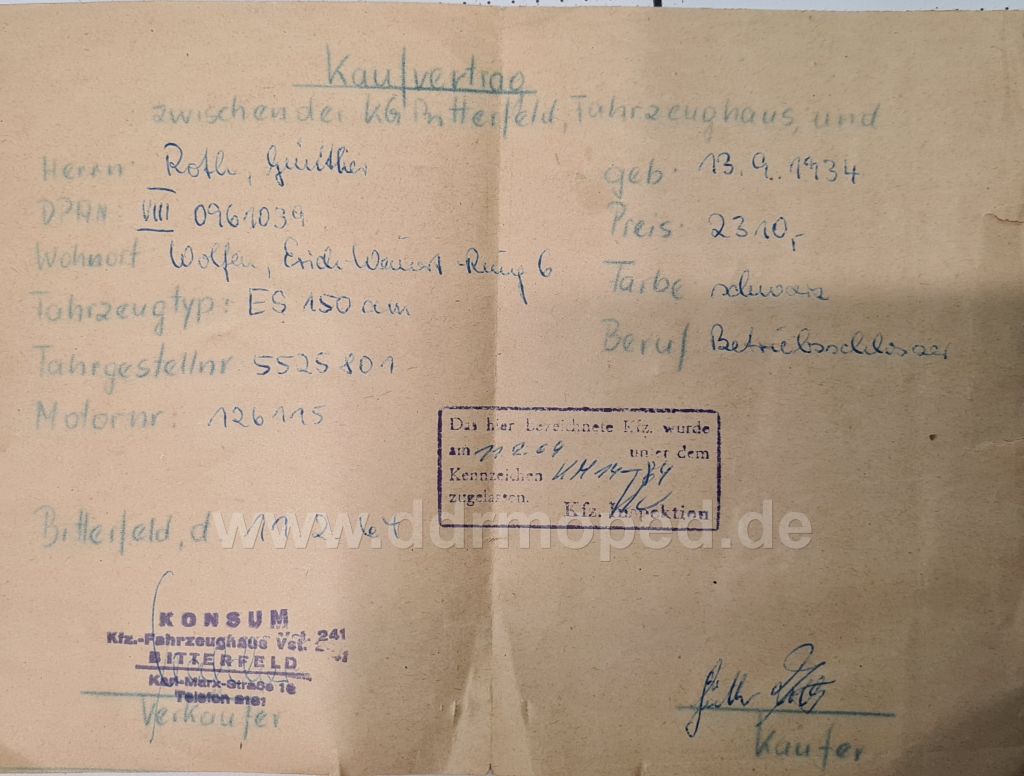 Kaufvertrag
zwischen der KG Bitterfeld, Fahrzeughaus, und
Herrn Roth, Günther geb. 13.9.1934
DPAN: VIII 0961039 Preis: 2310,-
Wohnort Wolfen, Erich-Weinert-Ring 6 Farbe schwarz
Fahrzeugtyp: ES 150 Beruf Betriebsschlosser
Fahrgestellnr 5525801
Motornr: 126115
Das hier bezeichnete Kfz. wurde
am 11.2.64 unter dem
Kennzeichen KH 14-
zugelassen.
Kfz. Inspektion
Bitterfeld, d 11.2.64
www.ddrmoped.de
KONSUM
Kfz.-Fahrzeughaus Vst. 241
BITTERFELD
Karl-Marx-Straße 1a
Telefon
Verkäufer
Käufer